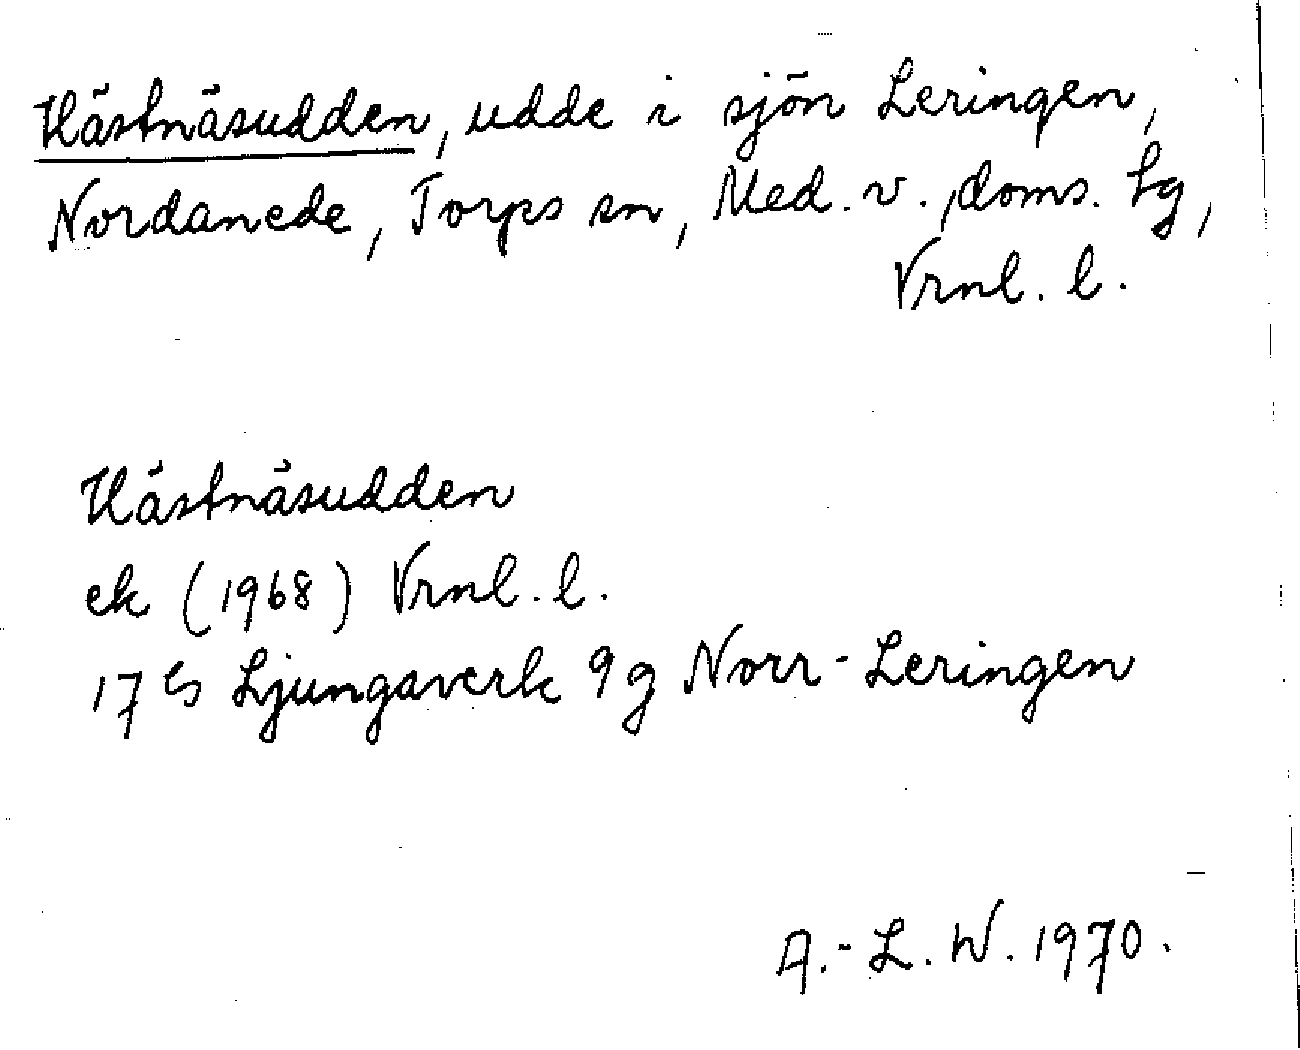 Hästnäsudden, udde i sjön Leringen,
Nordanede, Torps sn, Med. v. doms. tg,
Vrnl. l.
Hästnäsudden
ek (1968) Vrnl. l.
17 Es Ljungaverk 9 g Norr-Leringen
A.-L. W. 1970.